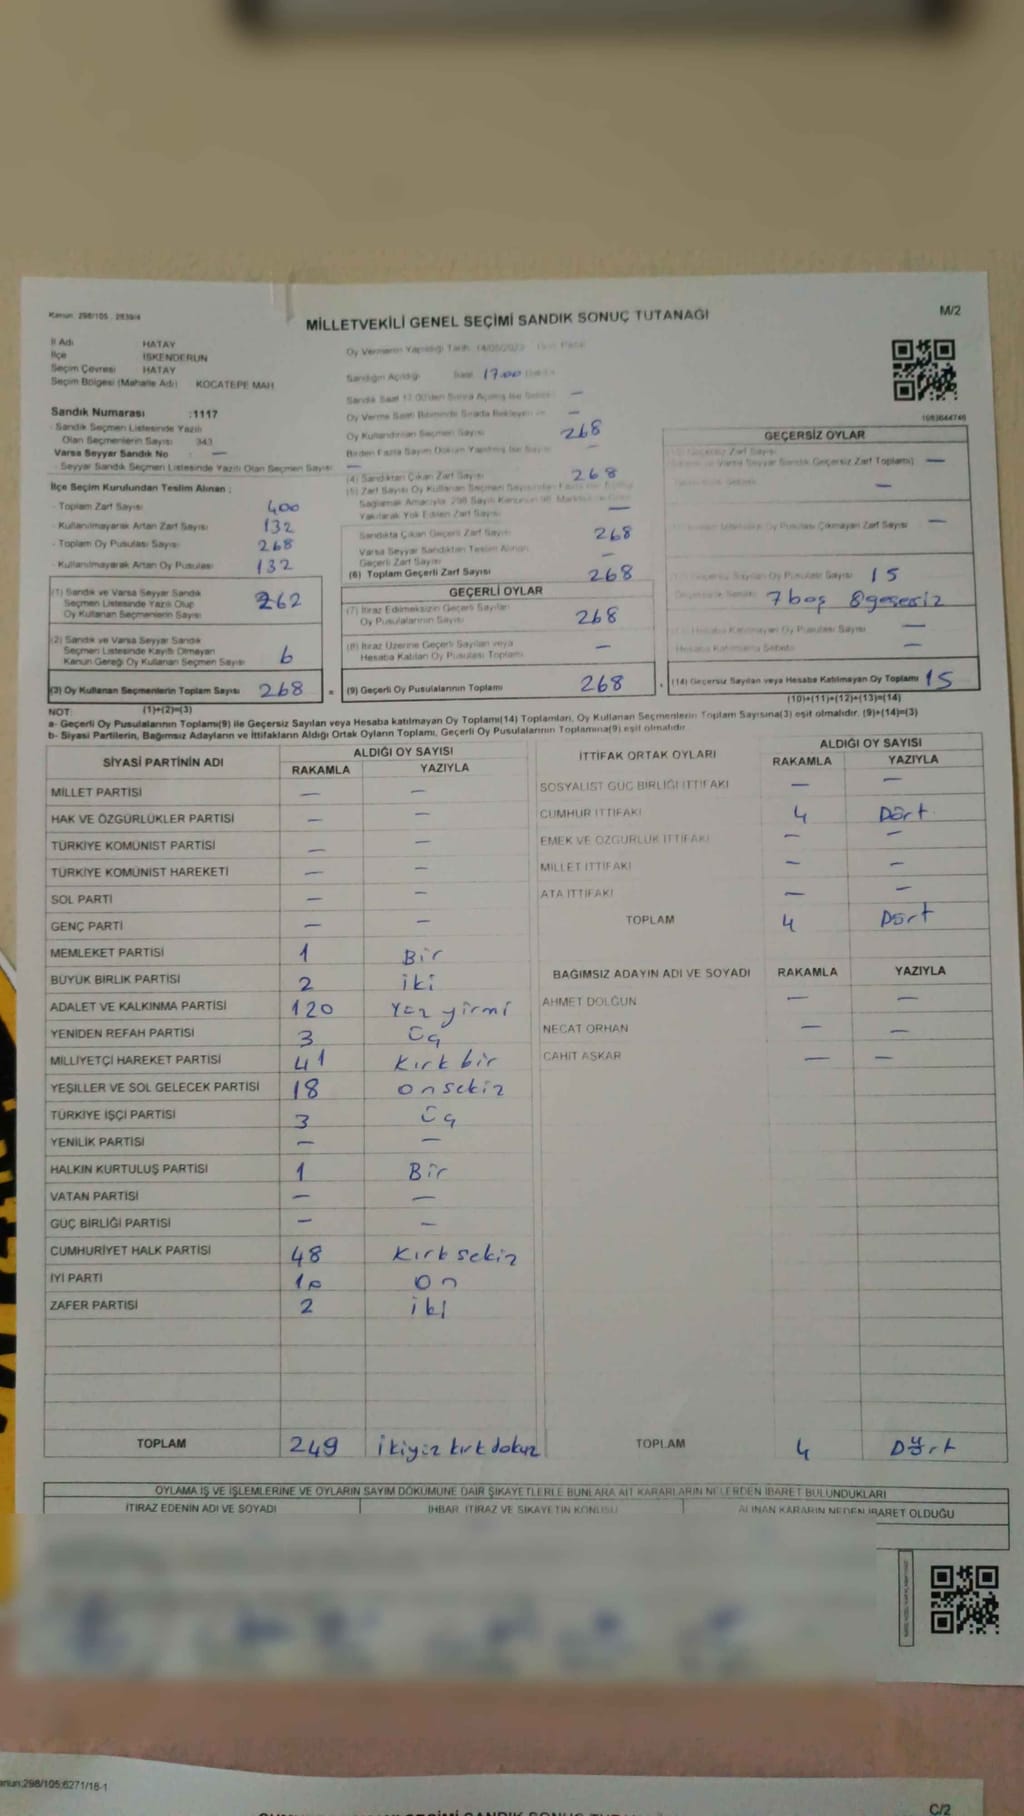 Kanun: 298/105 - 2839/4
MİLLETVEKİLİ GENEL SEÇİMİ SANDIK SONUÇ TUTANAĞI
M/2
İl Adı HATAY
İlçe İSKENDERUN
Seçim Çevresi HATAY
Seçim Bölgesi (Mahalle Adı) KOCATEPE MAH.
Sandık Numarası :1117
Sandık Seçmen Listesinde Yazılı
Olan Seçmenlerin Sayısı 343
Varsa Seyyar Sandık No —
- Seyyar Sandık Seçmen Listesinde Yazılı Olan Seçmen Sayısı —
İlçe Seçim Kurulundan Teslim Alınan ;
- Toplam Zarf Sayısı 400
- Kullanılmayarak Artan Zarf Sayısı 132
- Toplam Oy Pusulası Sayısı 268
- Kullanılmayarak Artan Oy Pusulası 132
(1) Sandık ve Varsa Seyyar Sandık
Seçmen Listesinde Yazılı Olup
Oy Kullanan Seçmenlerin Sayısı 262
(2) Sandık ve Varsa Seyyar Sandık
Seçmen Listesinde Kayıtlı Olmayan
Kanun Gereği Oy Kullanan Seçmen Sayısı 6
(3) Oy Kullanan Seçmenlerin Toplam Sayısı 268
(1)+(2)=(3)
Oy Vermenin Yapıldığı Tarih 14/05/2023
Sandığın Açıldığı Saat 17:00
Sandık Saat 17:00'den Sonra Açılmış İse Sebebi —
Oy Verme Saati Bitiminde Sırada Bekleyen —
Oy Kullandırılan Seçmen Sayısı 268
Birden Fazla Sayım Döküm Yapılmış İse Sayısı —
(4) Sandıktan Çıkan Zarf Sayısı 268
(5) Zarf Sayısı Oy Kullanan Seçmen Sayısından Fazla İse Eşitliği
Sağlamak Amacıyla 298 Sayılı Kanunun 98. Maddesine Göre
Yakılarak Yok Edilen Zarf Sayısı —
Sandıkta Çıkan Geçerli Zarf Sayısı 268
Varsa Seyyar Sandıktan Teslim Alınan
Geçerli Zarf Sayısı —
(6) Toplam Geçerli Zarf Sayısı 268
GEÇERLİ OYLAR
(7) İtiraz Edilmeksizin Geçerli Sayılan
Oy Pusulalarının Sayısı 268
(8) İtiraz Üzerine Geçerli Sayılan veya
Hesaba Katılan Oy Pusulası Toplamı —
(9) Geçerli Oy Pusulalarının Toplamı 268
1083644746
GEÇERSİZ OYLAR
Geçersiz Zarf Sayısı
(Sandık ve Varsa Seyyar Sandık Geçersiz Zarf Toplamı) —
—
Oy Pusulası Çıkmayan Zarf Sayısı —
Geçersiz Sayılan Oy Pusulası Sayısı 15
7 boş 8 geçersiz
Hesaba Katılmayan Oy Pusulası Sayısı —
Hesaba Katılmama Sebebi —
(14) Geçersiz Sayılan veya Hesaba Katılmayan Oy Toplamı 15
(10)+(11)+(12)+(13)=(14)
NOT:
a- Geçerli Oy Pusulalarının Toplamı(9) ile Geçersiz Sayılan veya Hesaba katılmayan Oy Toplamı(14) Toplamları, Oy Kullanan Seçmenlerin Toplam Sayısına(3) eşit olmalıdır. (9)+(14)=(3)
b- Siyasi Partilerin, Bağımsız Adayların ve İttifakların Aldığı Ortak Oyların Toplamı, Geçerli Oy Pusulalarının Toplamına(9) eşit olmalıdır.
SİYASİ PARTİNİN ADI ALDIĞI OY SAYISI
RAKAMLA YAZIYLA
MİLLET PARTİSİ — —
HAK VE ÖZGÜRLÜKLER PARTİSİ — —
TÜRKİYE KOMÜNİST PARTİSİ — —
TÜRKİYE KOMÜNİST HAREKETİ — —
SOL PARTİ — —
GENÇ PARTİ — —
MEMLEKET PARTİSİ 1 Bir
BÜYÜK BİRLİK PARTİSİ 2 iki
ADALET VE KALKINMA PARTİSİ 120 Yüz yirmi
YENİDEN REFAH PARTİSİ 3 Üç
MİLLİYETÇİ HAREKET PARTİSİ 41 Kırk bir
YEŞİLLER VE SOL GELECEK PARTİSİ 18 onsekiz
TÜRKİYE İŞÇİ PARTİSİ 3 Üç
YENİLİK PARTİSİ — —
HALKIN KURTULUŞ PARTİSİ 1 Bir
VATAN PARTİSİ — —
GÜÇ BİRLİĞİ PARTİSİ — —
CUMHURİYET HALK PARTİSİ 48 Kırk sekiz
İYİ PARTİ 10 On
ZAFER PARTİSİ 2 iki
TOPLAM 249 ikiyüz kırk dokuz
İTTİFAK ORTAK OYLARI ALDIĞI OY SAYISI
RAKAMLA YAZIYLA
SOSYALİST GÜÇ BİRLİĞİ İTTİFAKI — —
CUMHUR İTTİFAKI 4 Dört
EMEK VE ÖZGÜRLÜK İTTİFAKI — —
MİLLET İTTİFAKI — —
ATA İTTİFAKI — —
TOPLAM 4 Dört
BAĞIMSIZ ADAYIN ADI VE SOYADI RAKAMLA YAZIYLA
AHMET DOLĞUN — —
NECAT ORHAN — —
CAHİT AŞKAR — —
TOPLAM 4 Dört
OYLAMA İŞ VE İŞLEMLERİNE VE OYLARIN SAYIM DÖKÜMÜNE DAİR ŞİKAYETLERLE BUNLARA AİT KARARLARIN NELERDEN İBARET BULUNDUKLARI
İTİRAZ EDENİN ADI VE SOYADI İHBAR İTİRAZ VE ŞİKAYETİN KONUSU ALINAN KARARIN NEDEN İBARET OLDUĞU
anun:298/105;6271/18-1
C/2